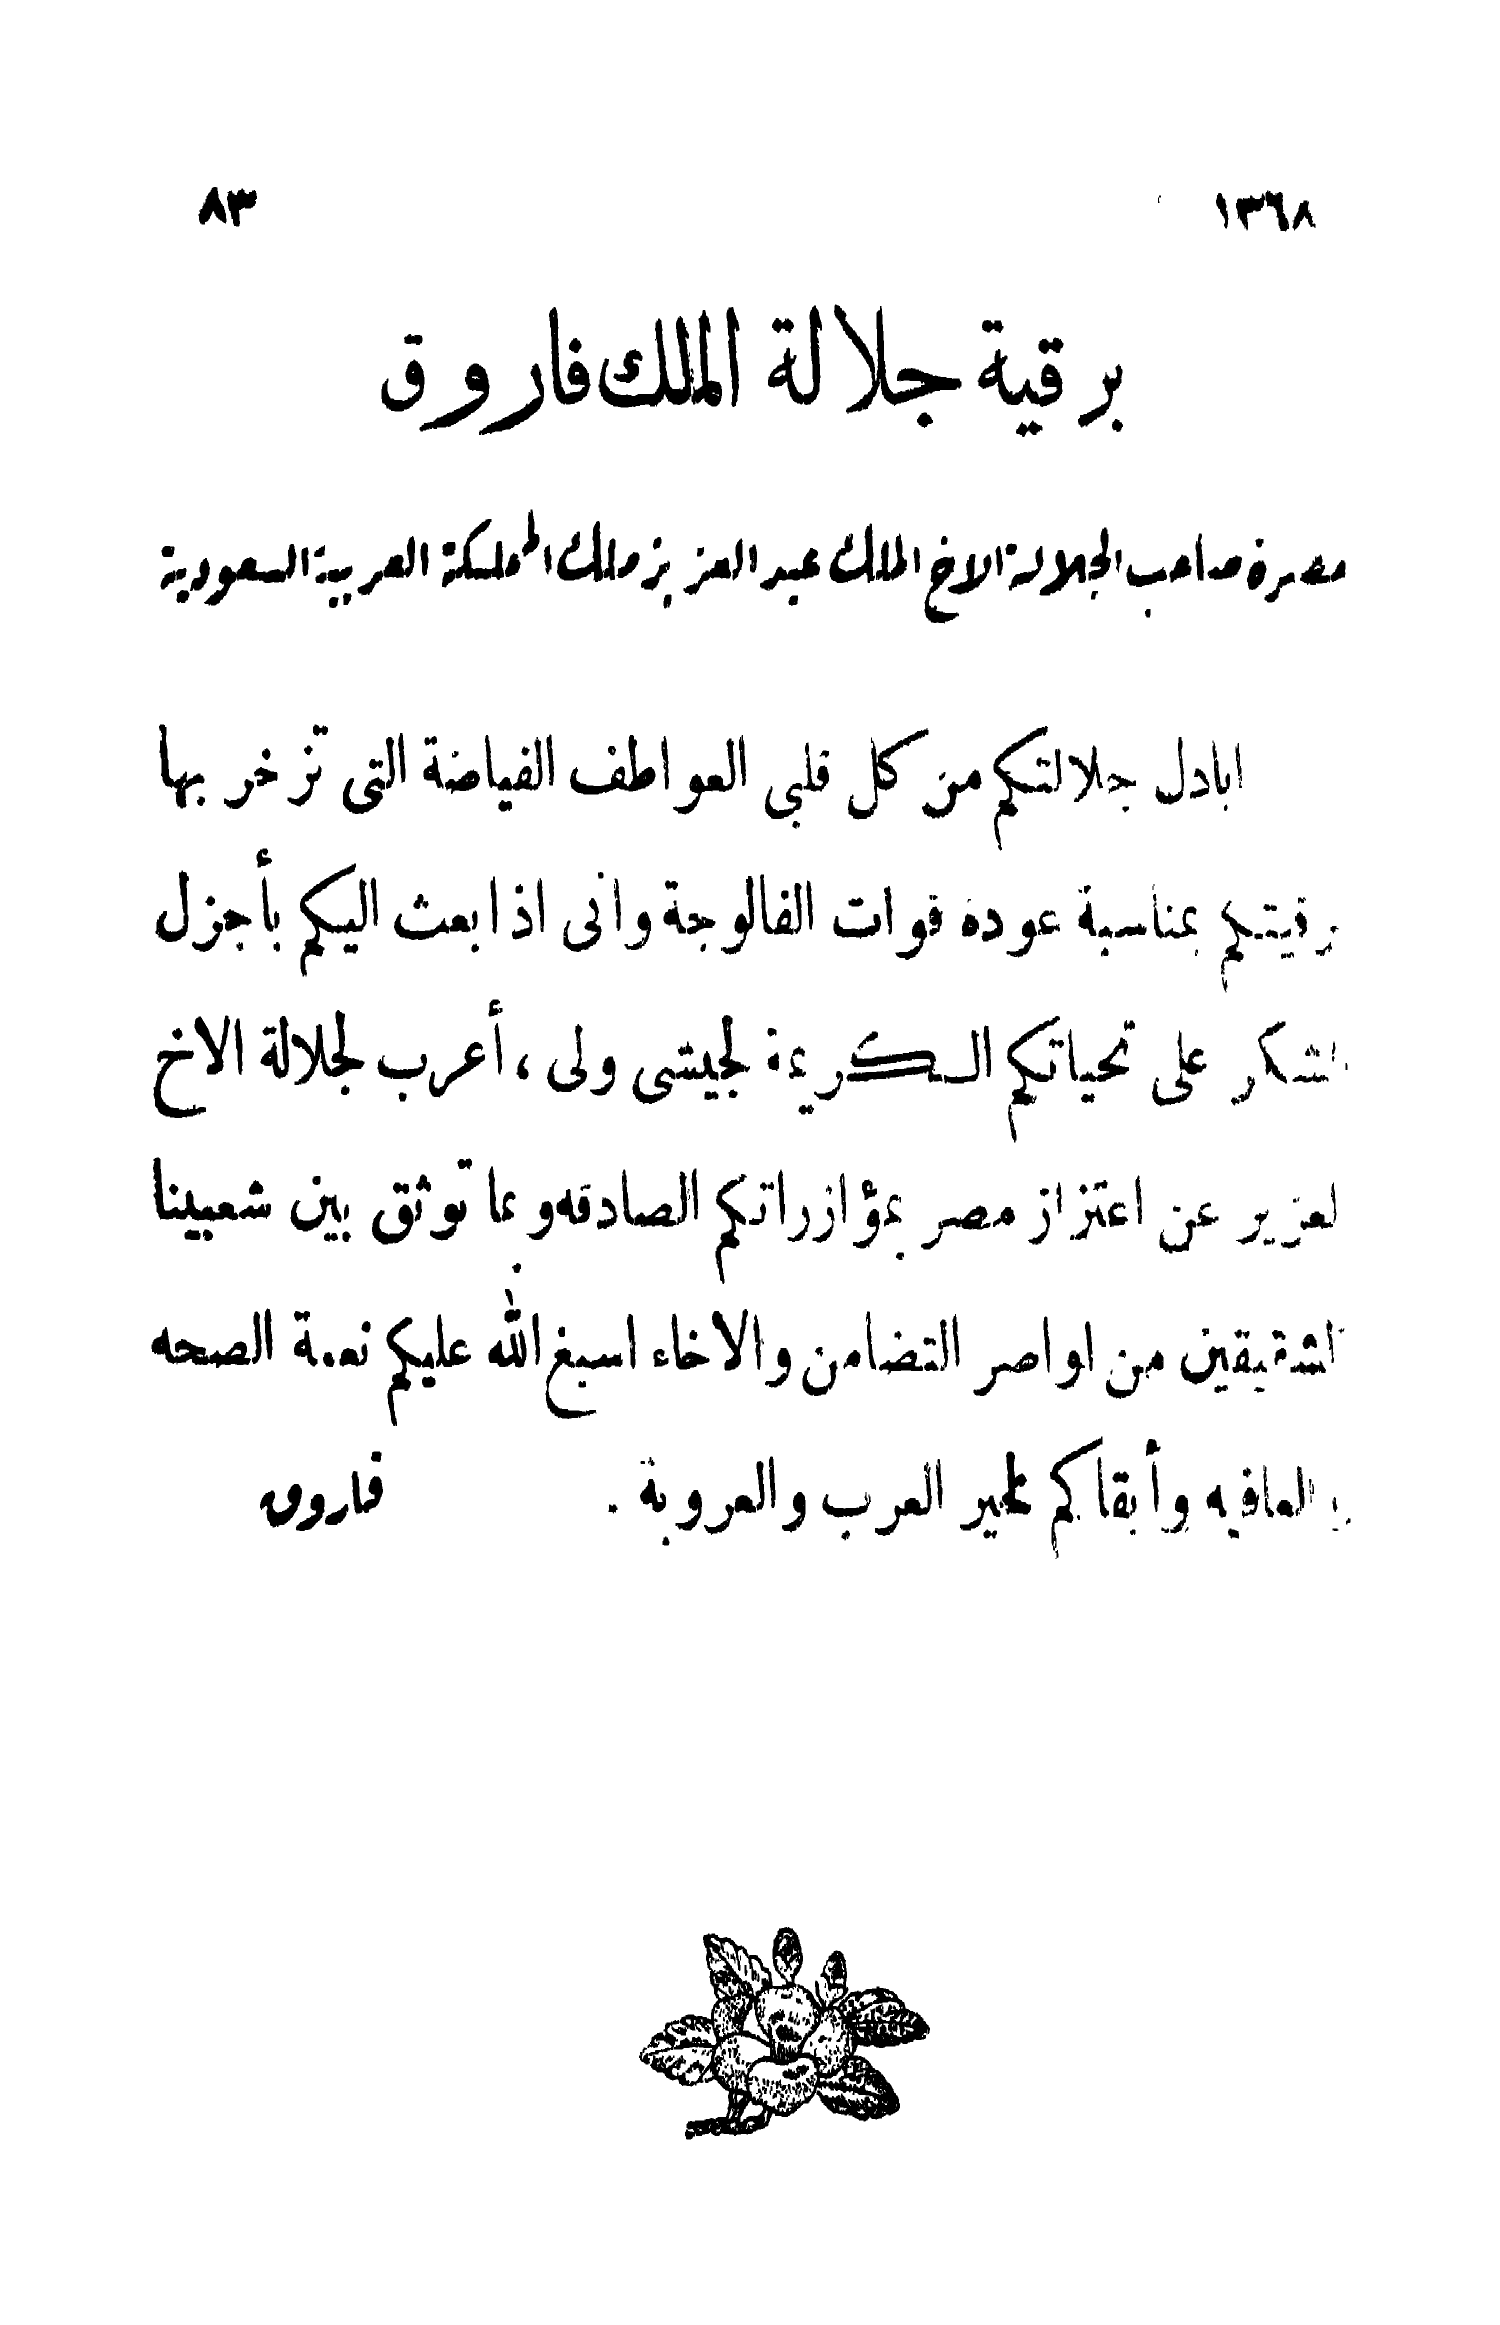 ١٣٦٨ ٨٣
برقية جلالة الملك فاروق
حضرة صاحب الجلالة الاخ الملك عبد العزيز ملك المملكة العربية السعودية
ابادل جلالتكم من كل قلبي العواطف الفياضة التى تزخر بها
برقيتكم بمناسبة عودة قوات الفالوجة وانى اذ ابعث اليكم بأجزل
الشكر على تحياتكم الكريمة لجيشى ولى ، أعرب لجلالة الاخ
العزيز عن اعتزاز مصر بمؤازراتكم الصادقه وبما توثق بين شعبينا
الشقيقين من اواصر التضامن والاخاء اسبغ الله عليكم نعمة الصحه
والعافيه وأبقاكم لخير العرب والعروبة . فاروق